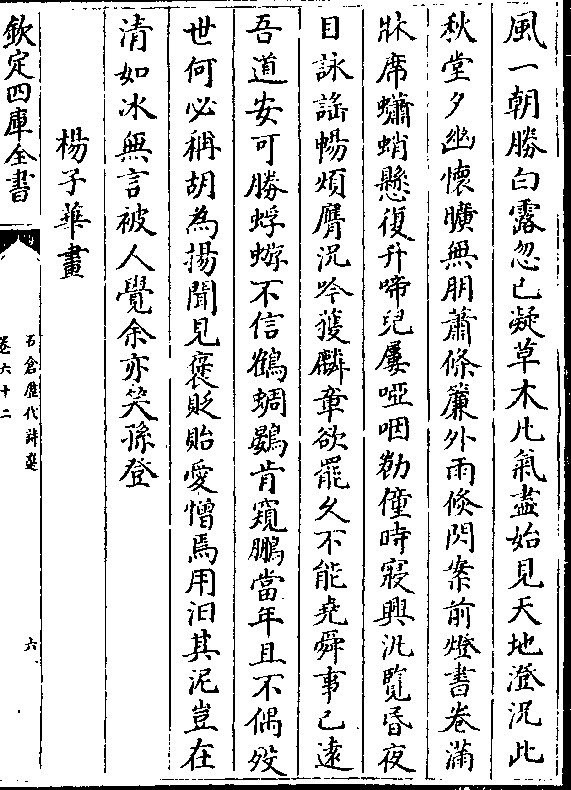 風一朝勝白露忽已凝草木凡氣盡始見天地澄況此
秋堂夕幽懷曠無朋蕭條簾外雨倐閃案前燈書卷滿
牀席蠨蛸懸復升啼兒屢啞咽倦僮時寢興汎覽昏夜
目詠謡暢煩膺況吟獲麟章欲罷久不能堯舜事已遠
吾道安可勝蜉蝣不信鶴蜩鷃肯窺鵬當年且不偶歿
世何必稱胡為揚聞見褒貶貽愛憎焉用汩其泥豈在
清如冰無言被人覺余亦笑孫登
楊子華畫
欽定四庫全書
石倉歴代詩選
卷六十二
六